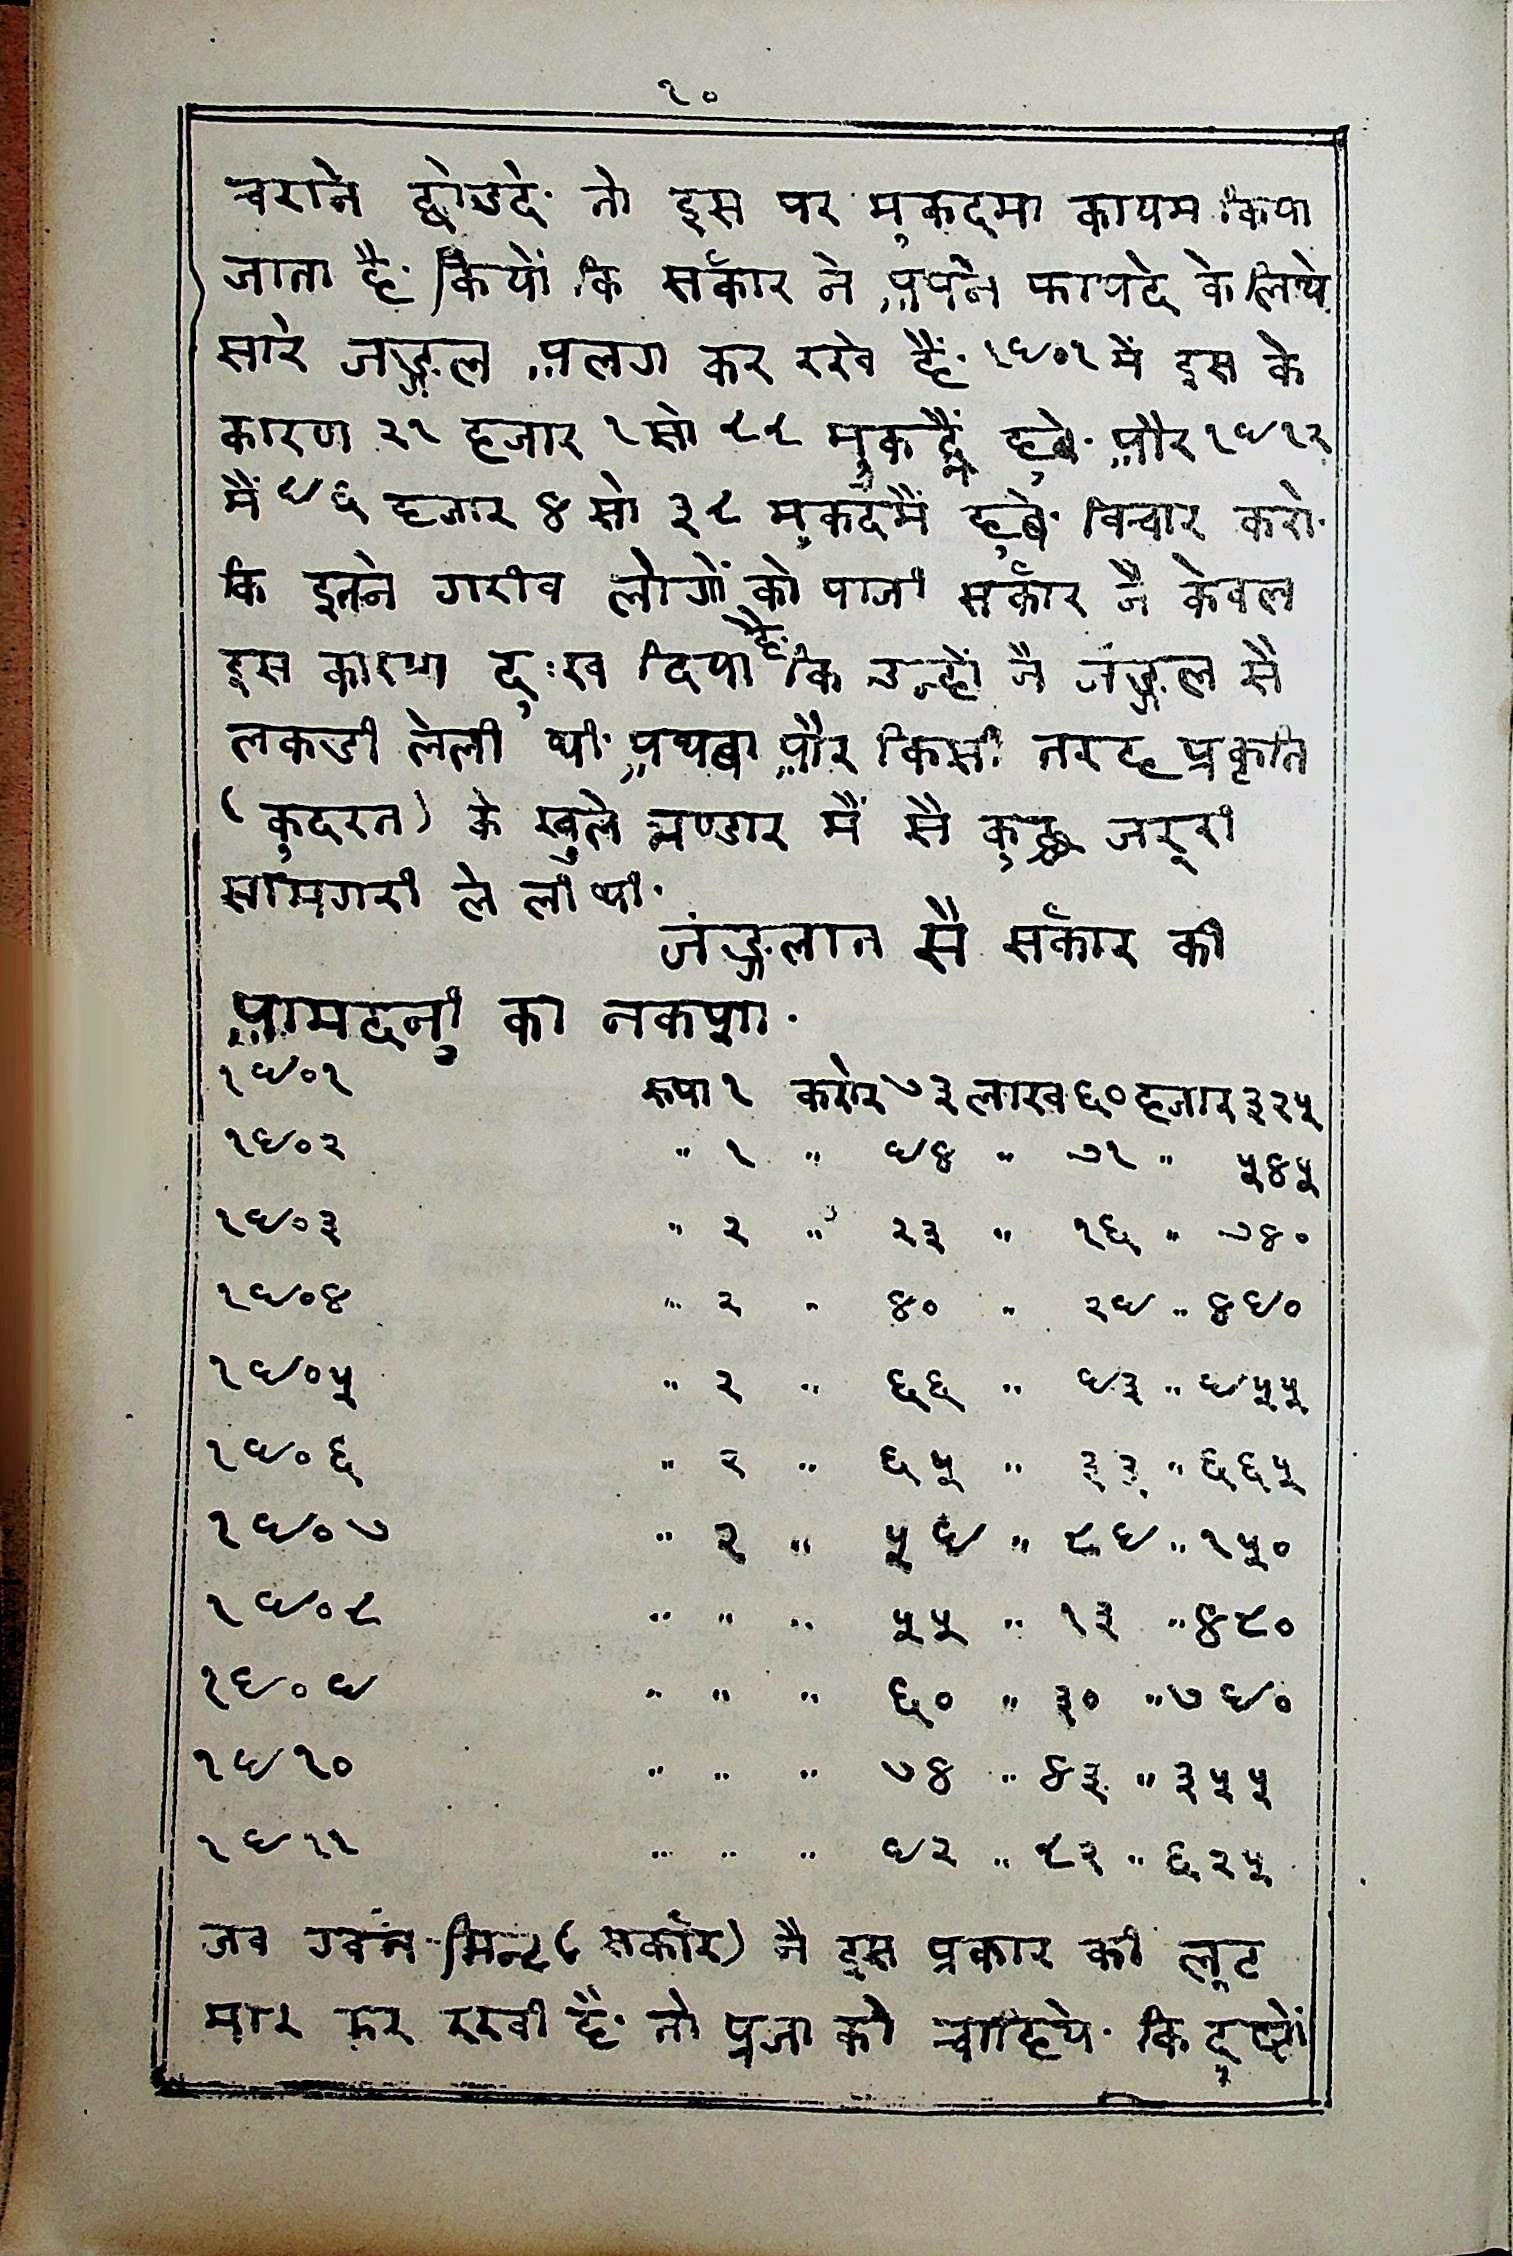 १०
चराने छोडदे· तो इस पर मुकद्मा कायम किया
जाता है· कियों कि सर्कार ने अपने फायदे के लिये
सारे जङ्गल अलग कर रखे हैं· १९०१ में इस के
कारण २१ हजार १ सो ८८ मुकद्मैं हुवे· और १९१२
मैं ९६ हजार ४ सो ३८ मुकदमैं हुवे· विचार करो·
कि इतने गरीव लोगों को पाजी सर्कार नै केवल
इस कारण दुःख दिया है· कि उन्हों नै जंङ्गल सै
लकडी लेली थी· अथवा और किसी तरह प्रकृति
(कुदरत) के खुले भण्डार मैं सै कुछ जरूरी
सामगरी ले ली थी·
जंङ्गलात सै सर्कार की
आमदनी का नकशा·
१९०१ रुपा १ करोर ७३ लाख ६० हजार ३२५
१९०२ " १ " ९४ " ७१ " ५४५
१९०३ " २ " २३ " १६ " ७४०
१९०४ " २ " ४० " २९ " ४९०
१९०५ " २ " ६६ " ९३ " ९५५
१९०६ " २ " ६५ " ३३ " ६६५
१९०७ " २ " ५९ " ८९ " १५०
१९०८ " " " ५५ " १३ " ४८०
१९०९ " " " ६० " ३० " ७९०
१९१० " " " ७४ " ४३ " ३५५
१९११ " " " ९२ " ८२ " ६२५
जव गवर्न-मिन्ट (सर्कार) नै इस प्रकार की लूट
मार कर रखी है· तो प्रजा को चाहिये· कि दुष्टों